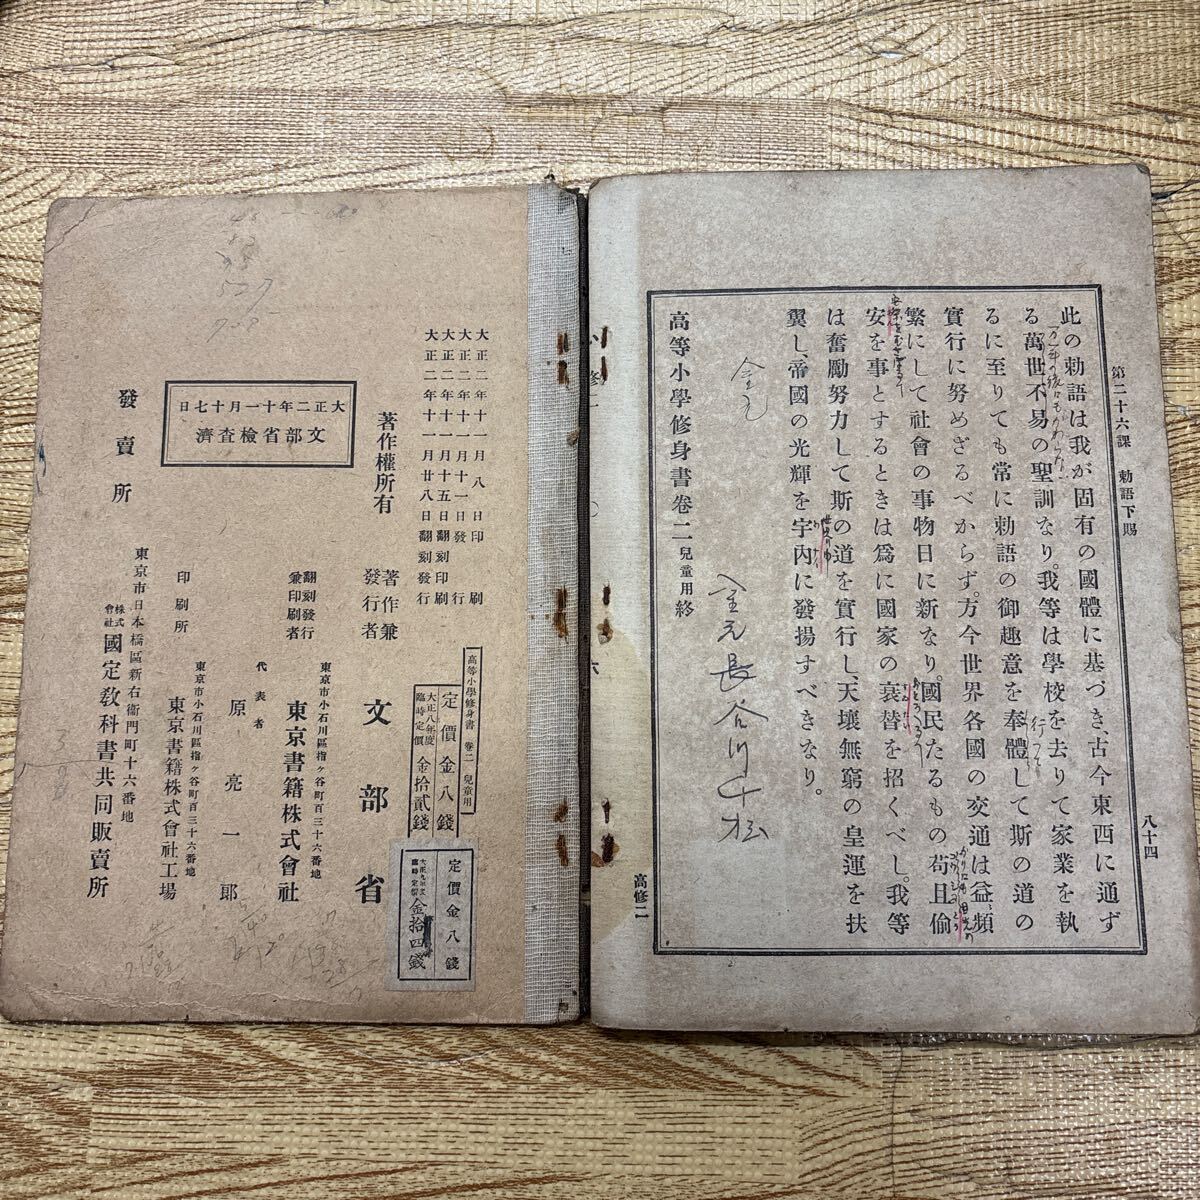 第二十六課 勅語下賜
八十四
此の勅語は我が固有の國體に基づき、古今東西に通ず
る萬世不易の聖訓なり。我等は學校を去りて家業を執
るに至りても常に勅語の御趣意を奉體して斯の道の
實行に努めざるべからず。方今世界各國の交通は益〻頻
繁にして社會の事物日に新なり。國民たるもの苟且偷
安を事とするときは爲に國家の衰替を招くべし。我等
は奮勵努力して斯の道を實行し、天壤無窮の皇運を扶
翼し、帝國の光輝を宇內に發揚すべきなり。
高等小學修身書卷二 兒童用 終
金元
金元長谷川千松
高修二
大正二年十一月八日印刷
大正二年十一月十一日發行
大正二年十一月十五日翻刻印刷
大正二年十一月廿八日翻刻發行
高等小學修身書 卷二 兒童用
定價金八錢
大正八年度臨時定價 金拾貳錢
定價金八錢
臨時定價 金拾四錢
著作權所有
著作兼發行者 文部省
翻刻發行兼印刷者
東京市小石川區指ヶ谷町百三十六番地
東京書籍株式會社
代表者 原亮一郎
東京市小石川區指ヶ谷町百三十六番地
印刷所 東京書籍株式會社工場
大正二年十一月十七日
文部省檢査濟
發賣所
東京市日本橋區新右衞門町十六番地
株式會社 國定敎科書共同販賣所